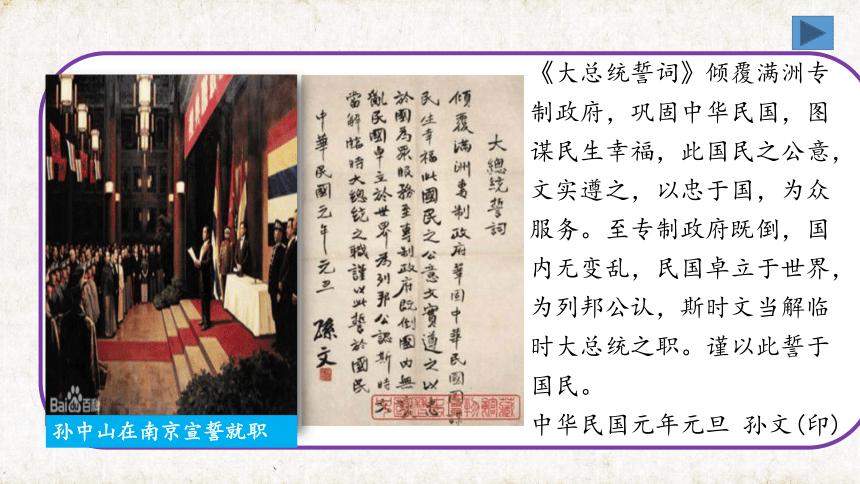 孙中山在南京宣誓就职
Bai百科
大總統誓詞
傾覆滿洲專制政府鞏固中華民國圖謀
民生幸福此國民之公意文實遵之以忠
於國為眾服務至專制政府既倒國內無變
亂民國卓立於世界為列邦公認斯時文
當解臨時大總統之職謹以此誓於國民
中華民國元年元旦 孫文
《大总统誓词》倾覆满洲专
制政府，巩固中华民国，图
谋民生幸福，此国民之公意，
文实遵之，以忠于国，为众
服务。至专制政府既倒，国
内无变乱，民国卓立于世界，
为列邦公认，斯时文当解临
时大总统之职。谨以此誓于
国民。
中华民国元年元旦 孙文(印)